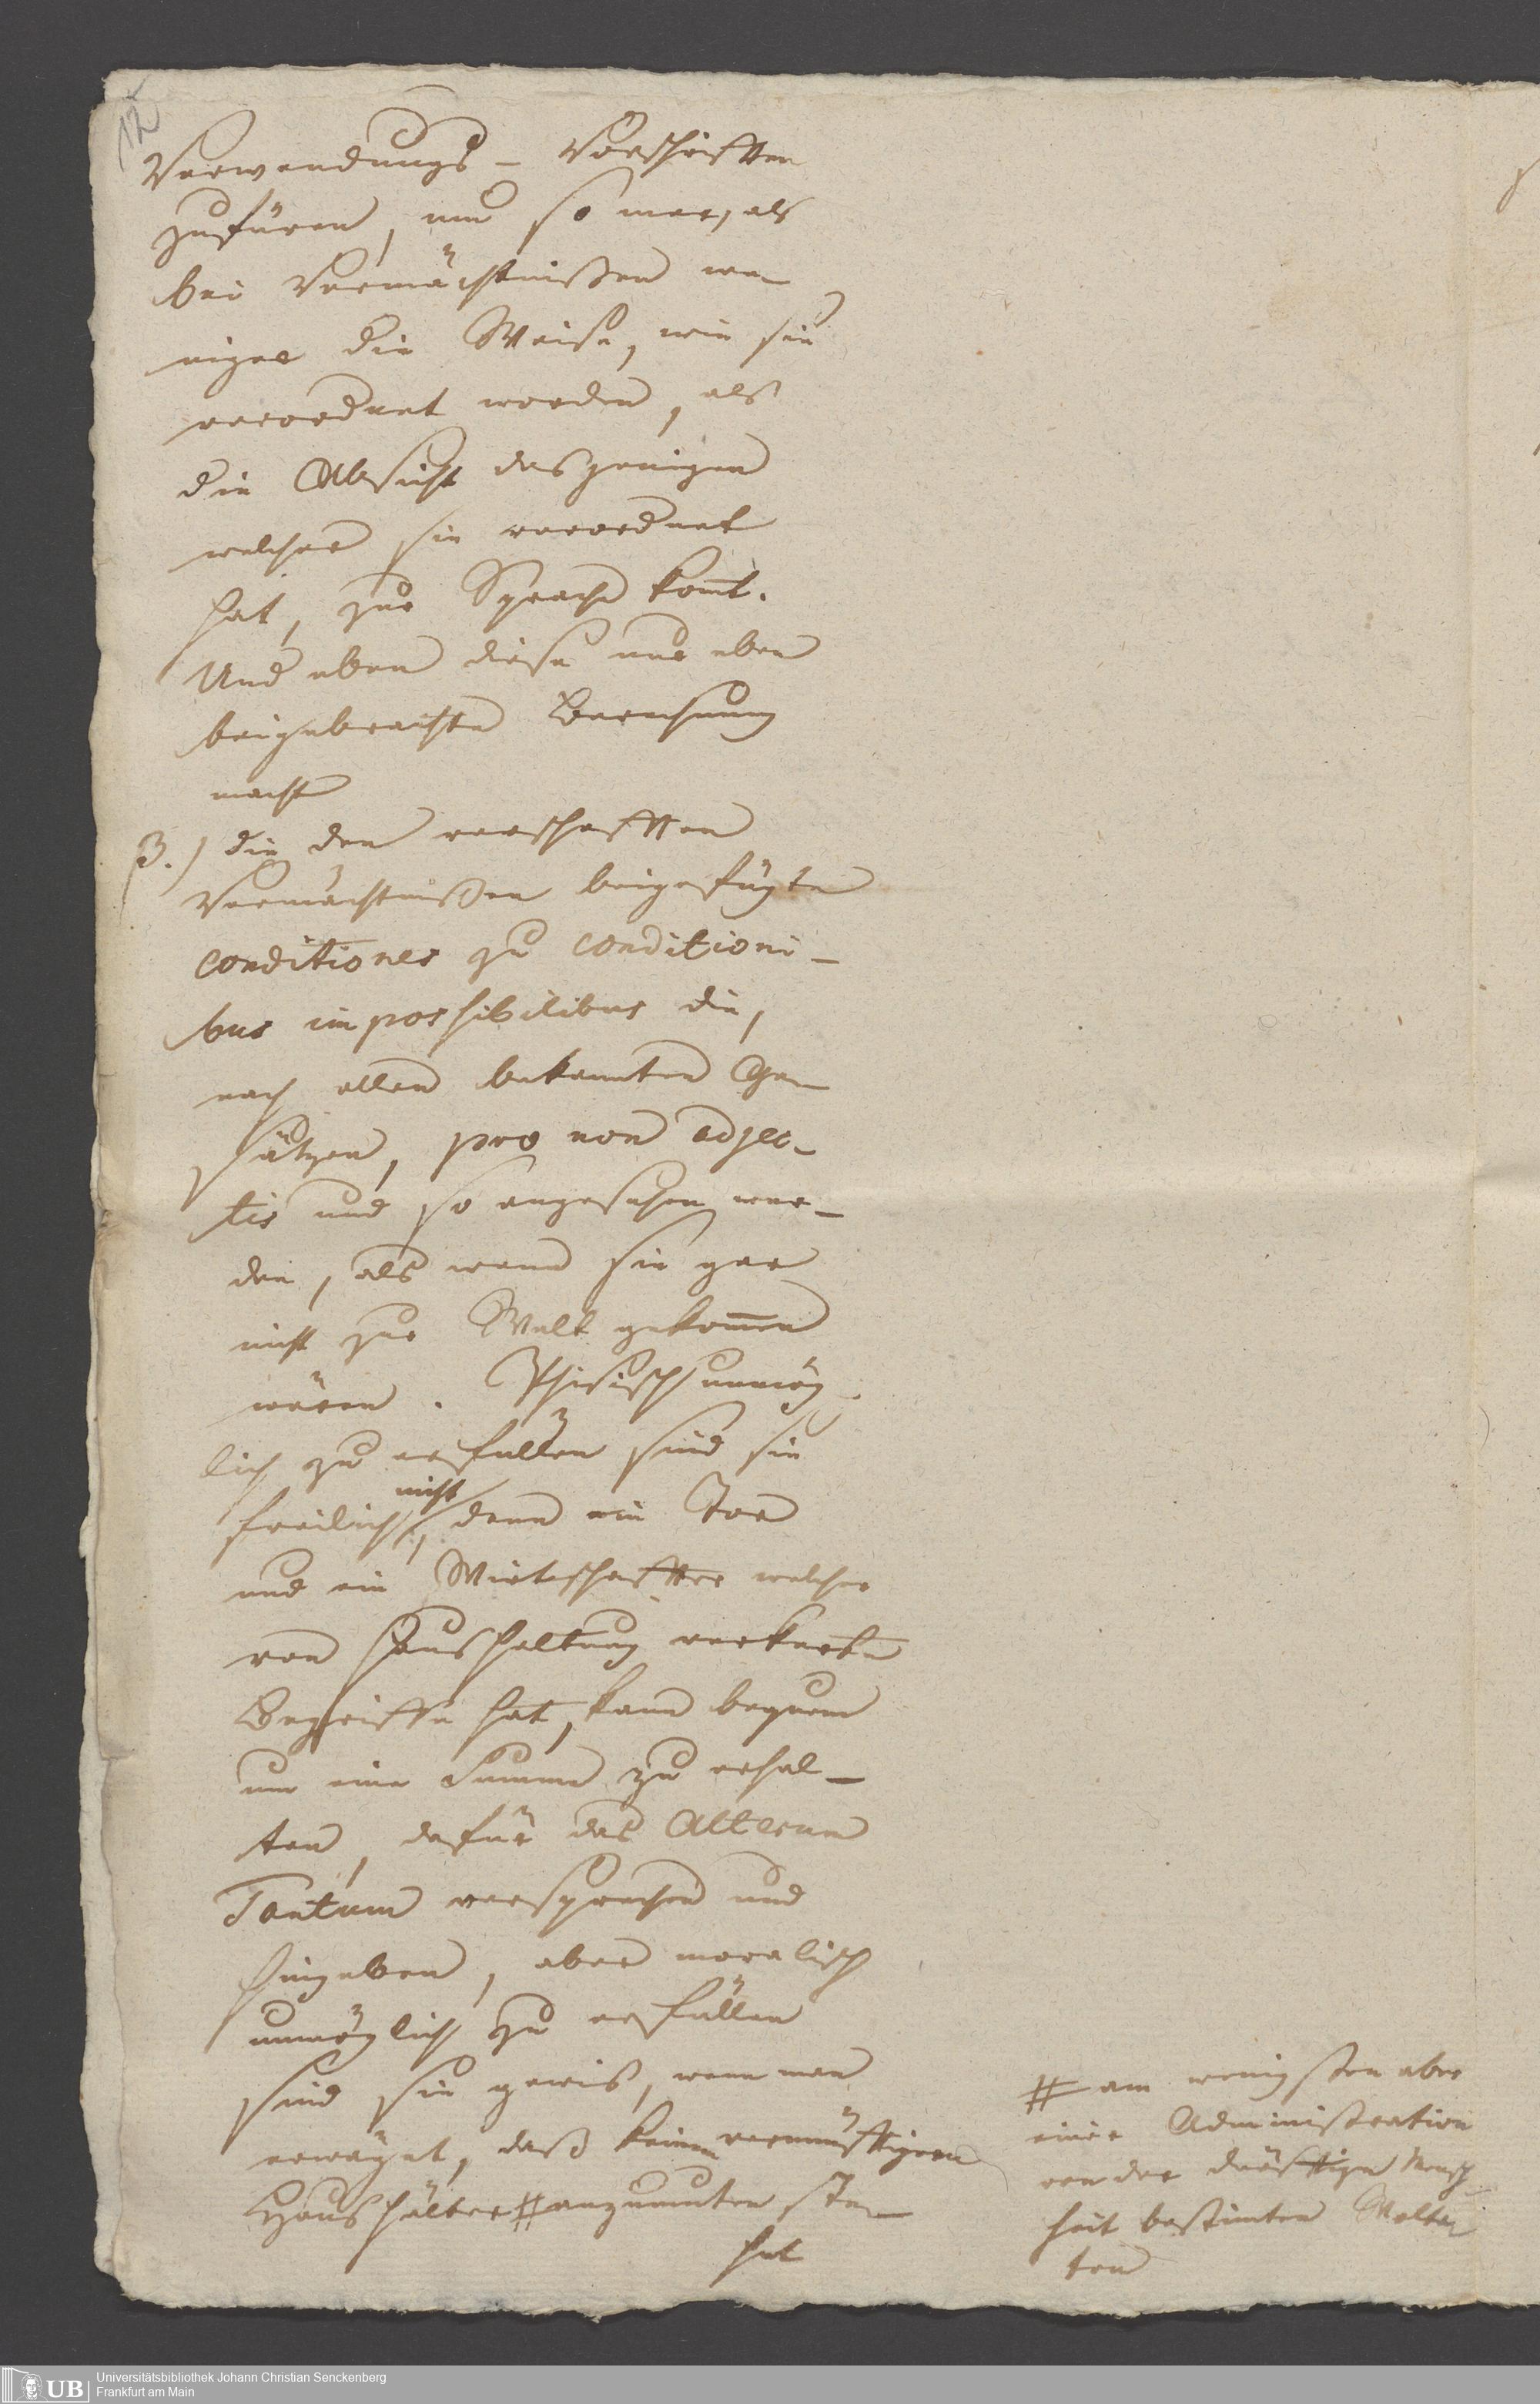 12
Verwendungs-Vorschrifften
zufüren, um so mer, als
bei Vermächtnißen we-
niger die Weise, wie sie
verordnet worden, als
die Absicht desjenigen
welcher sie verordnet
hat, zur Sprache kom̄t.
Und eben diese nur eben
beigebrachte Berechnung
macht
3.) die den verschafften
Vermächtnißen beigefügte
conditiones zu conditioni-
bus impossibilibus die,
nach allen bekannten Ge-
sätzen, pro non adjec-
tis und so angesehen wer-
den, als wenn sie gar
nicht zur Welt gekom̄en
wären. Phisisch unmög-
lich zu erfüllen sind sie
nicht
freilich, denn ein Tor
und ein Wirtschaffter welcher
von Haushaltung verkerte
Begriffe hat, kann bequem
um eine Summe zu erhal-
ten, dafür das Alterum
Tantum versprechen und
hingeben, aber moralisch
unmöglich zu erfüllen
sind sie gewis, wenn man
erwäget, daß keinem vernünfftigen
Haushälter # anzumuten ste-
het
# am wenigsten aber
einer Administration
von der dürfftigen Mensch
heit bestimten Wolta
ten
Universitätsbibliothek Johann Christian Senckenberg
UB Frankfurt am Main